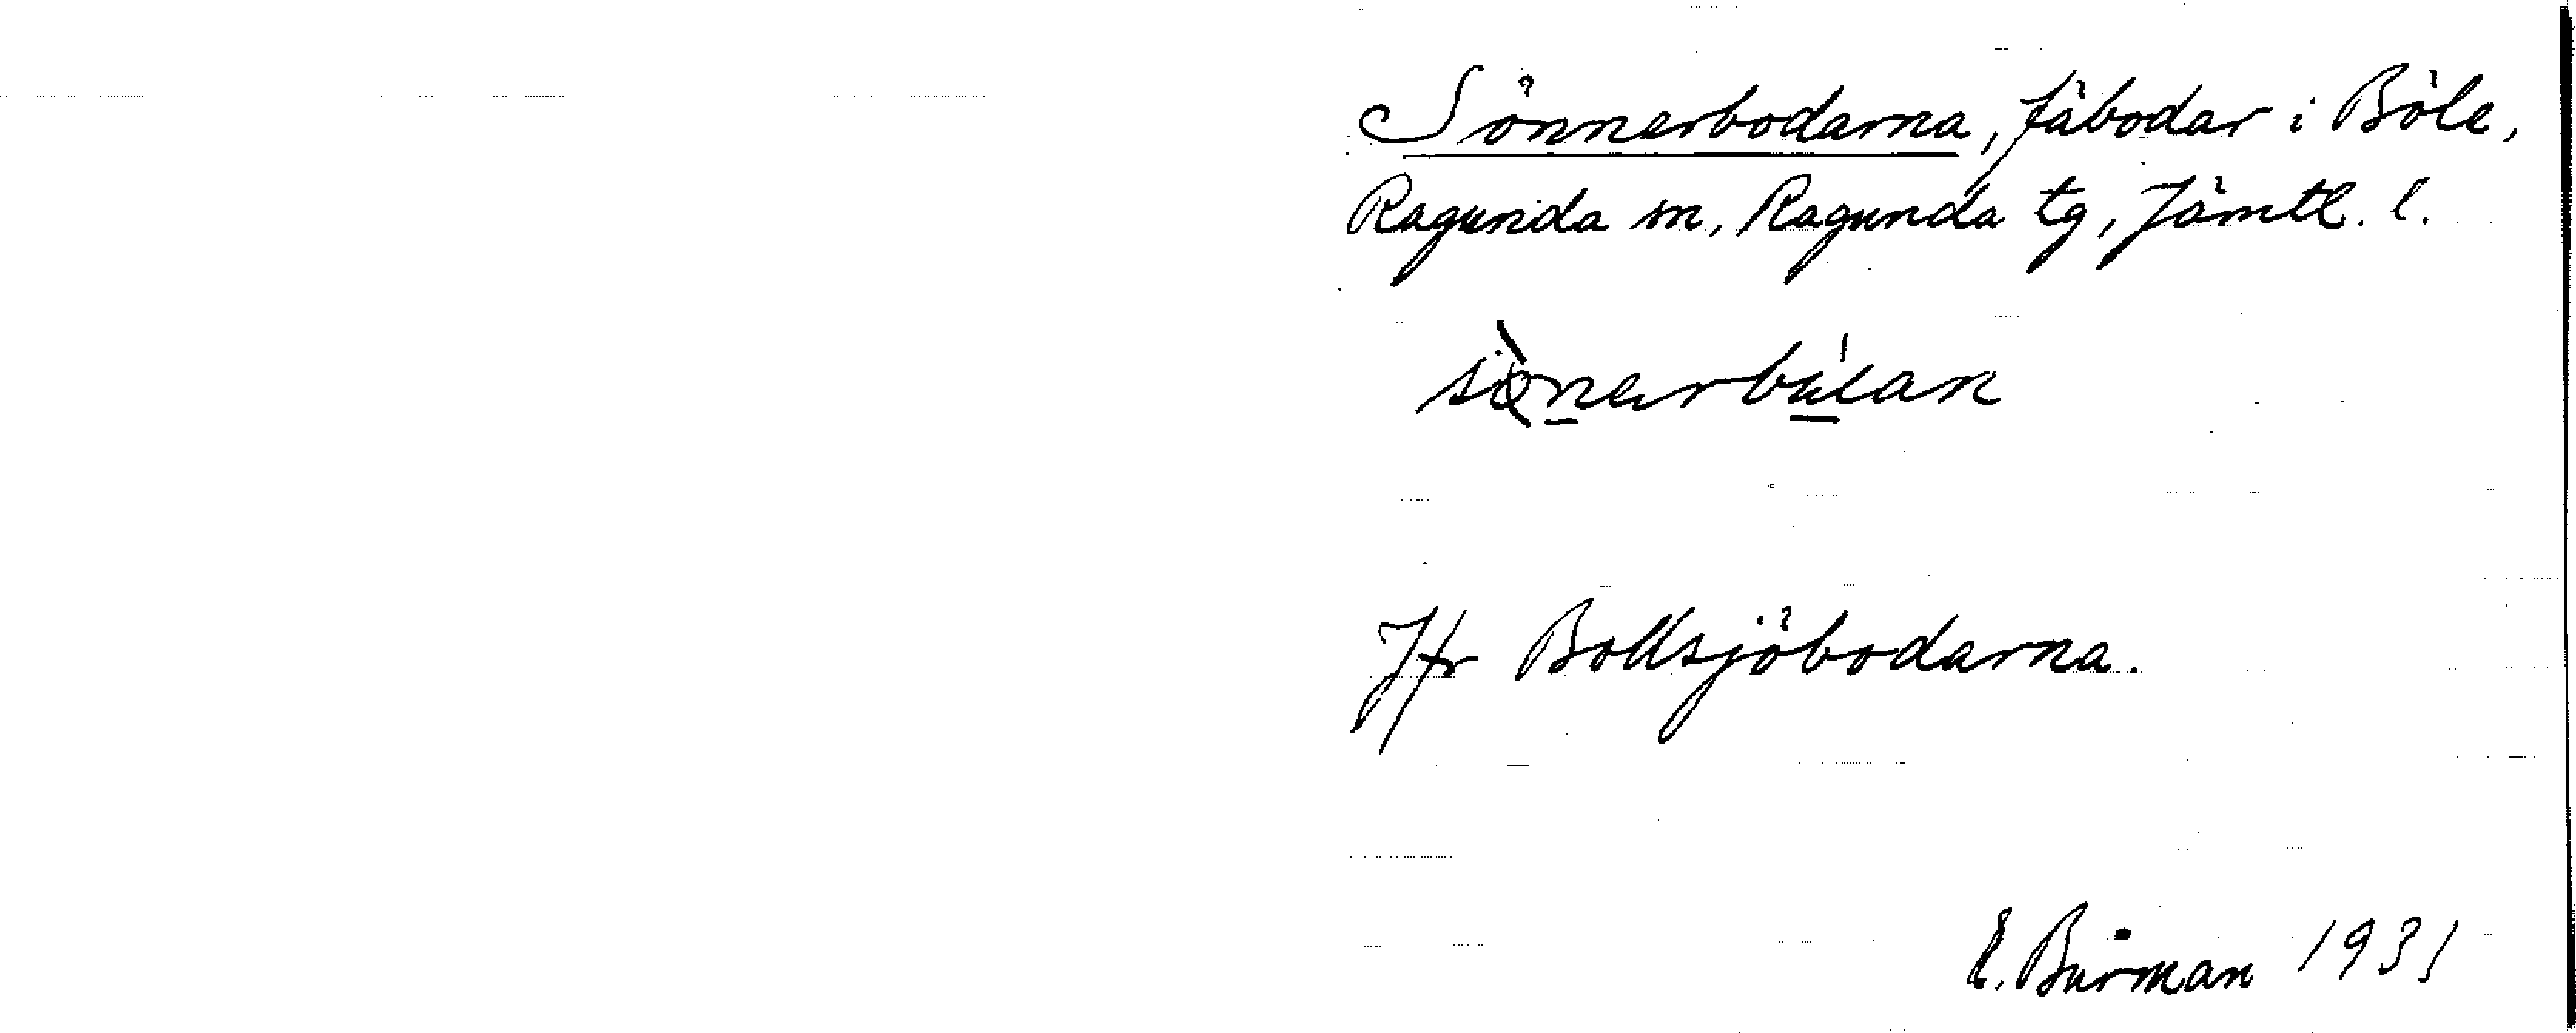 Sönnerbodarna, fäbodar i Böle,
Ragunda sn, Ragunda tg, Jämtl. l.
Jfr Bollsjöbodarna.
E. Burman 1931